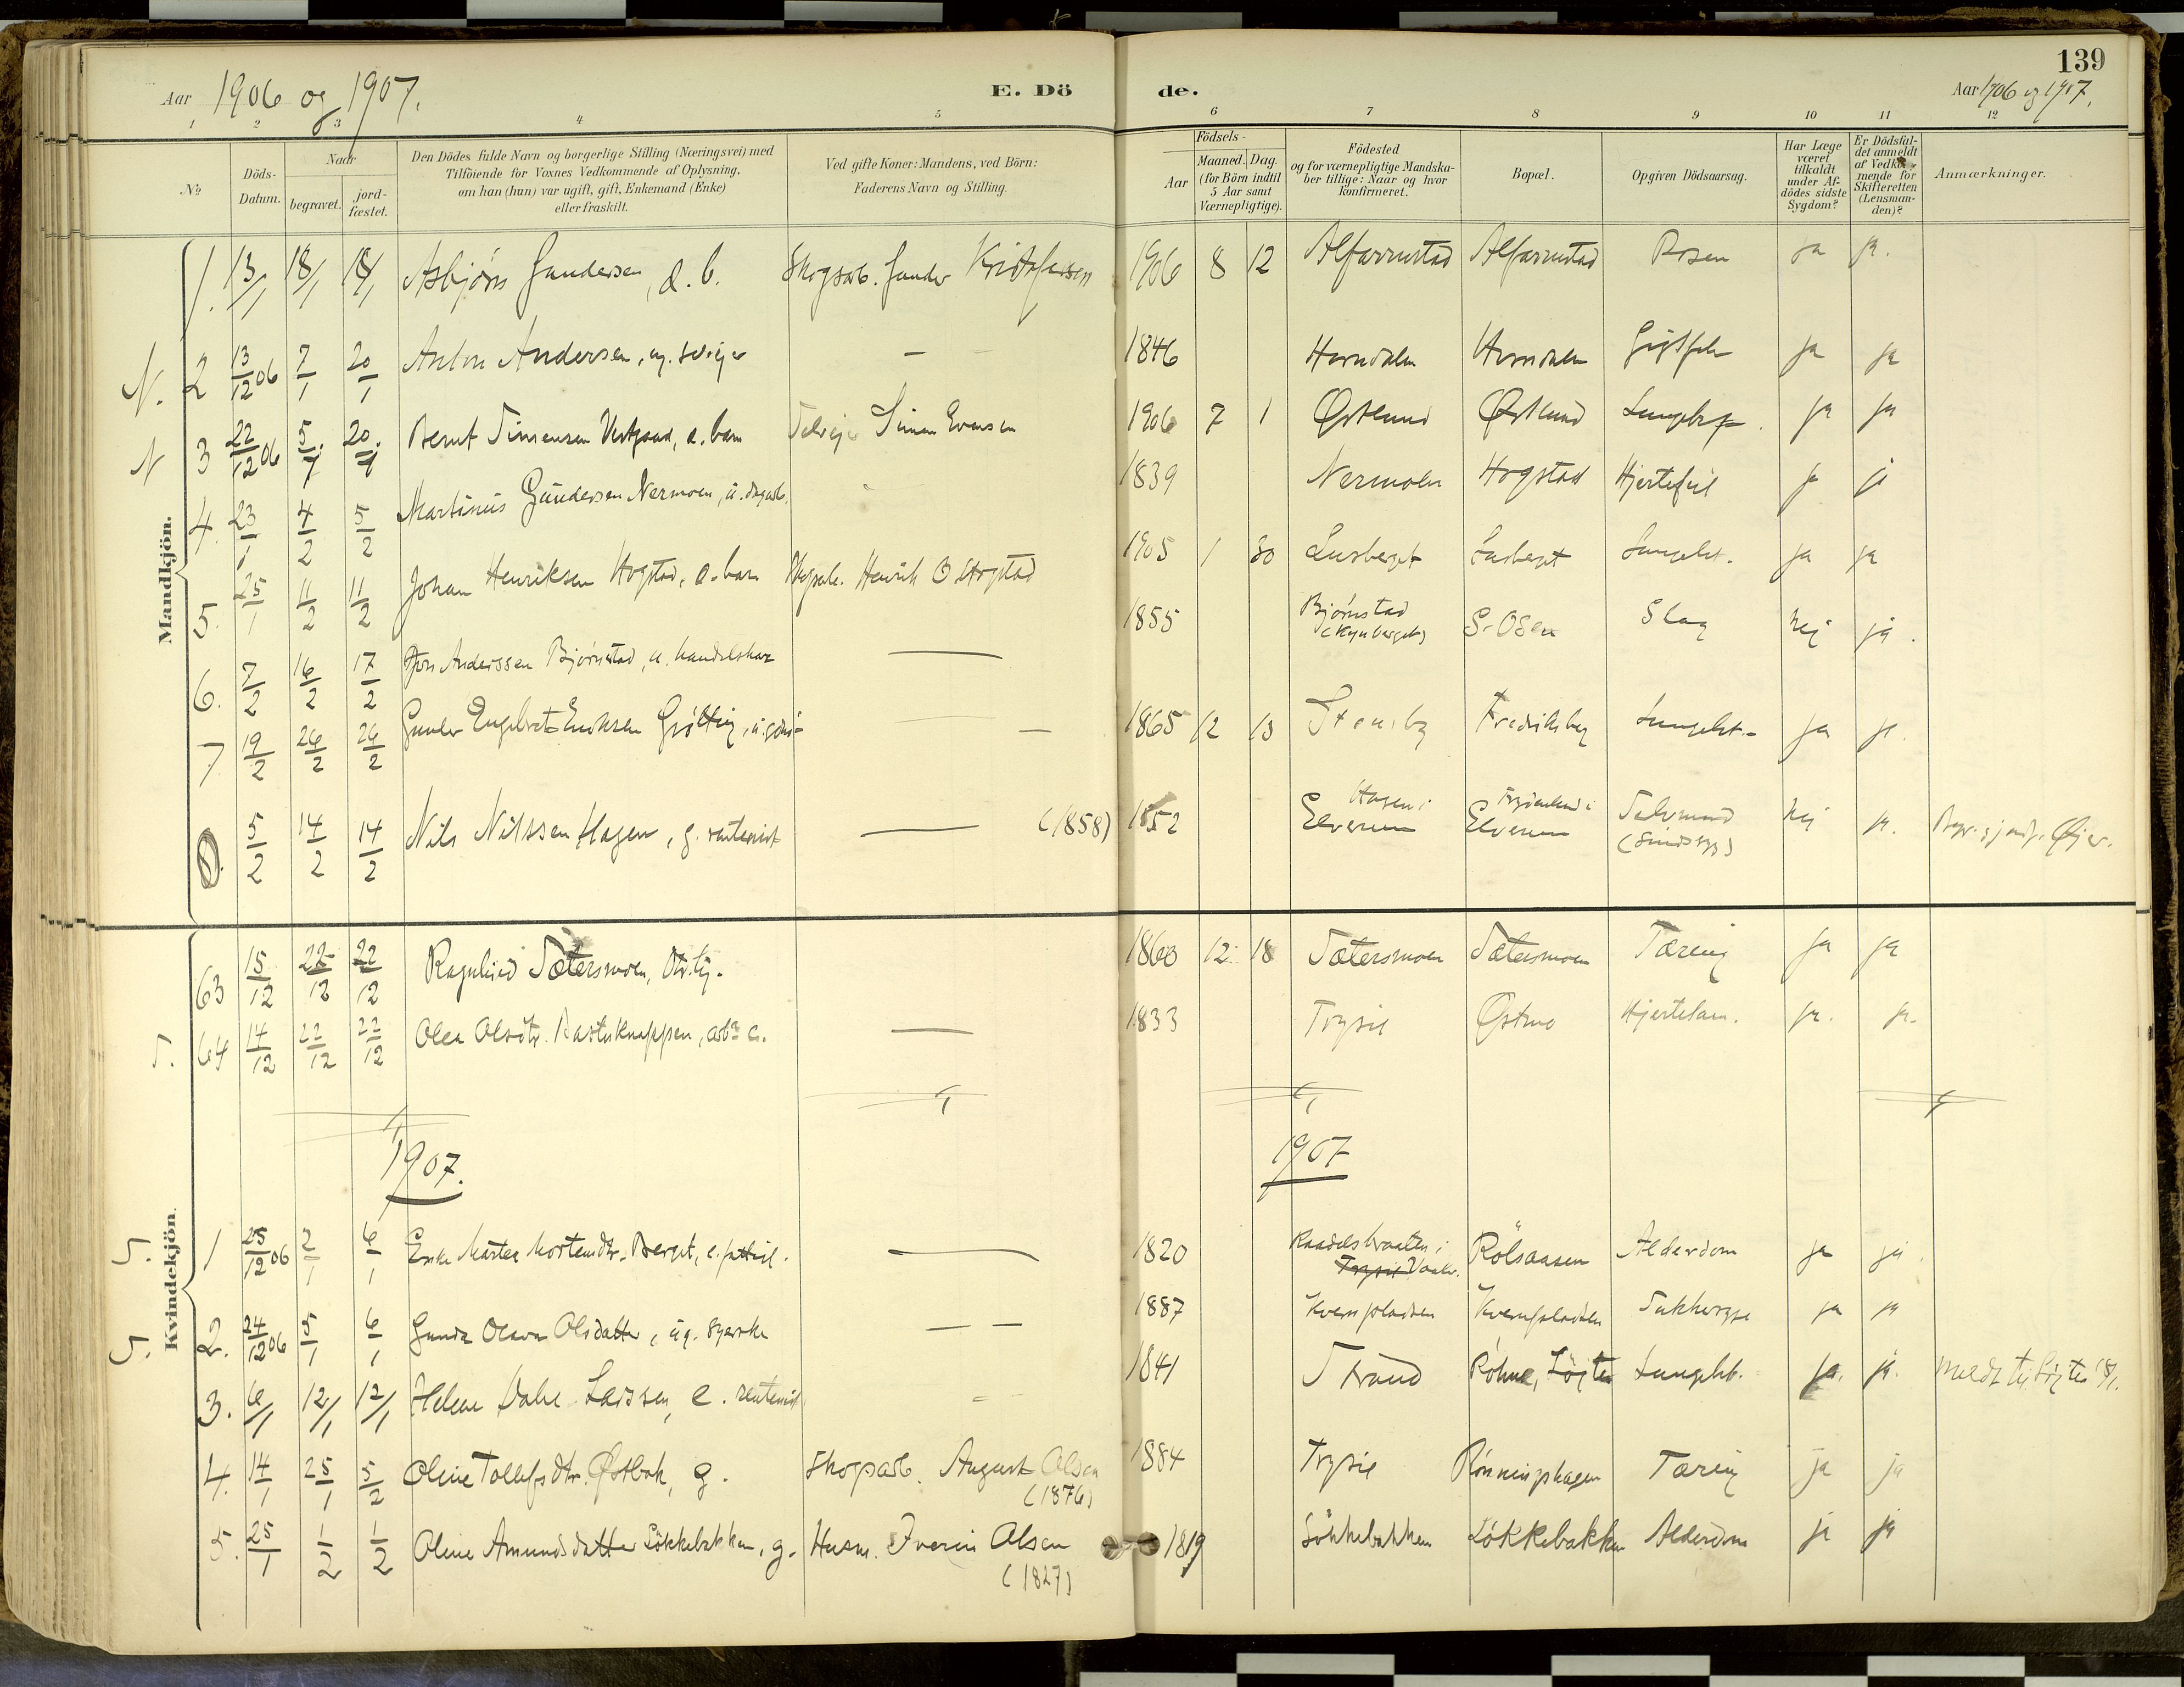 139
Aar 1906 og 1907.
E. Dö de.
Aar 1906 og 1907.
1 2 3 4 5 6 7 8 9 10 11 12
No.
Döds-Datum.
Naar
begravet.
jord-fæstet.
Den Dödes fulde Navn og borgerlige Stilling (Næringsvei) med
Tilföiende for Voxnes Vedkommende af Oplysning,
om han (hun) var ugift, gift, Enkemand (Enke)
eller fraskilt.
Ved gifte Koner: Mandens, ved Börn:
Faderens Navn og Stilling.
Födsels-
Aar
Maaned. Dag.
(for Börn indtil
5 Aar samt
Værnepligtige).
Födested
og for værnepligtige Mandska-
ber tillige: Naar og hvor
konfirmeret.
Bopæl.
Opgiven Dödsaarsag.
Har Læge
været
tilkaldt
under Af-
dödes sidste
Sygdom?
Er Dödsfal-
det anmeldt
af Vedkom-
mende for
Skifteretten
(Lensman-
den)?
Anmærkninger.
Mandkjön.
1. 13/1 18/1 18/1 Asbjörn Gundersen, d. b. Skogsarb. Gunder Kristofersen 1906 8 12 Alfarrustad Alfarrustad Rosen ja ja.
N. 2 13/12 06 7/1 20/1 Anton Andersen, ug. selvejer — 1846 Horndalen Horndalen ja ja
N 3 22/12 06 5/1 20/1 Bernt Simensen Vestgaard, e. barn Selvejer Simen Evensen 1906 7 1 Østlund Østlund ja ja
4. 23/1 4/2 5/2 Martinus Gundersen Nermoen, u. dagarb. 1839 Nermoen Hogstad Hjertefeil ja ja
5. 25/1 11/2 11/2 Johan Henriksen Hogstad, e. barn Skogsarb. Henrik O. Hogstad 1905 1 30 Lusberget Lusberget Lungebt. ja ja
6. 7/2 16/2 17/2 Jon Anderssen Björnstad, u. handelskar — 1855 Bjørnstad (Kynberget) S. Osen Slag Nej ja.
7 19/2 26/2 26/2 Gunder Engebret Eriksen Grötting, — 1865 12 13 Stensby Fredriksberg Lungebt. ja ja.
8. 5/2 14/2 14/2 Nils Nilssen Hagen, g. rentenist — (1858) 1852 Hagen i Elverum Frydenlund i Elverum Selvmord (Sindssyg) Nej ja.
Kvindekjön.
63 15/12 22/12 22/12 Ragnhild Sætersmoen, 1860 12 18 Sætersmoen Sætersmoen Tæring ja ja
5. 64 14/12 22/12 22/12 Olea Olsdtr. Hasteknappen, — 1833 Trysil Østmo Hjertelam. ja. ja.
1907.
1907
5. 1 25/12 06 2/1 6/1 Enke Martea Mortensdtr. Berget, e. fattigl. — 1820 Raadelsbraaten i Trysil Vaaler. Rölsaasen Alderdom ja ja.
5. 2. 24/12 06 5/1 6/1 Gunda Olava Olsdatter, ug. syerske — — 1887 Kvernpladsen Kvernpladsen Sukkersyge ja ja
3. 6/1 12/1 12/1 Helene Dahl Larssen, e. rentenist 1841 Strand Röhne, Löiten Lungebt. ja. ja. Meldt til Löiten 18/1.
4. 14/1 25/1 5/2 Oline Tollefsdtr. Østbok, g. Skogsarb. August Olsen (1876) 1884 Trysil Rönningshagen Tæring ja ja
5. 25/1 1/2 1/2 Oline Amundsdatter Lökkebakken, g. Husm. Iverin Olsen (1827) 1819 Lökkebakken Lökkebakken Alderdom ja ja